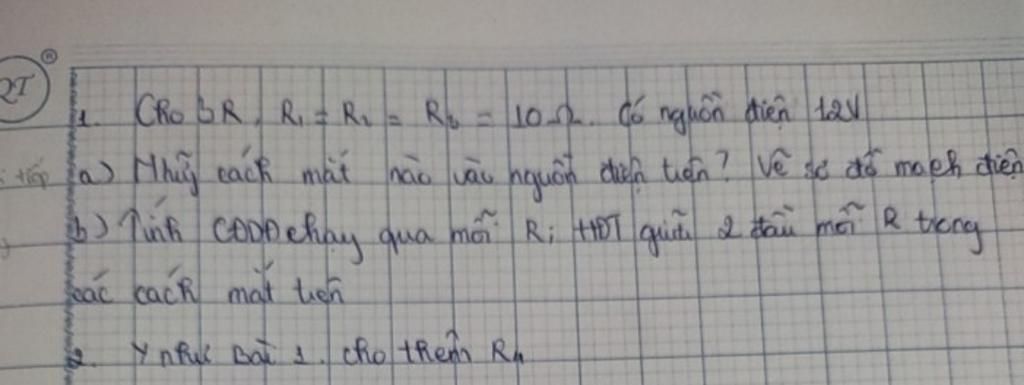 2T
1. Cho 3R, R₁ = R₂ = R₃ = 10Ω. Có nguồn điện 12V
a) Những cách mắt nào vào nguồn điện trên? Vẽ sơ đồ mạch điện
b) Tính CĐDĐ chạy qua mỗi R; HĐT giữa 2 đầu mỗi R trong
các cách mắt trên
2. Y như bài 1. cho thêm R₄